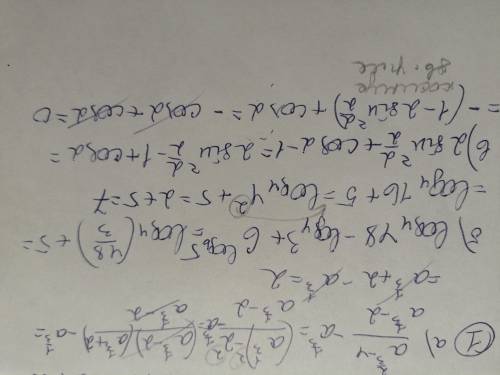 ① а) (a^{2/3}-4)/(a^{1/3}-2) - a^{1/3} = ((a^{1/3})^2-2^2)/(a^{1/3}-2) - a^{1/3} = ((a^{1/3}-2)(a^{1/3}+2))/(a^{1/3}-2) - a^{1/3} =
= a^{1/3}+2 - a^{1/3} = 2
б) log₄48 - log₄3 + 6^{log₆5} = log₄(48/3) + 5 =
= log₄16 + 5 = log₄4² + 5 = 2+5=7
в) 2 sin² α/2 + cos α - 1 = 2 sin² α/2 - 1 + cos α =
= -(1-2 sin² α/2) + cos α = - cos α + cos α = 0
косинус
дв. угла